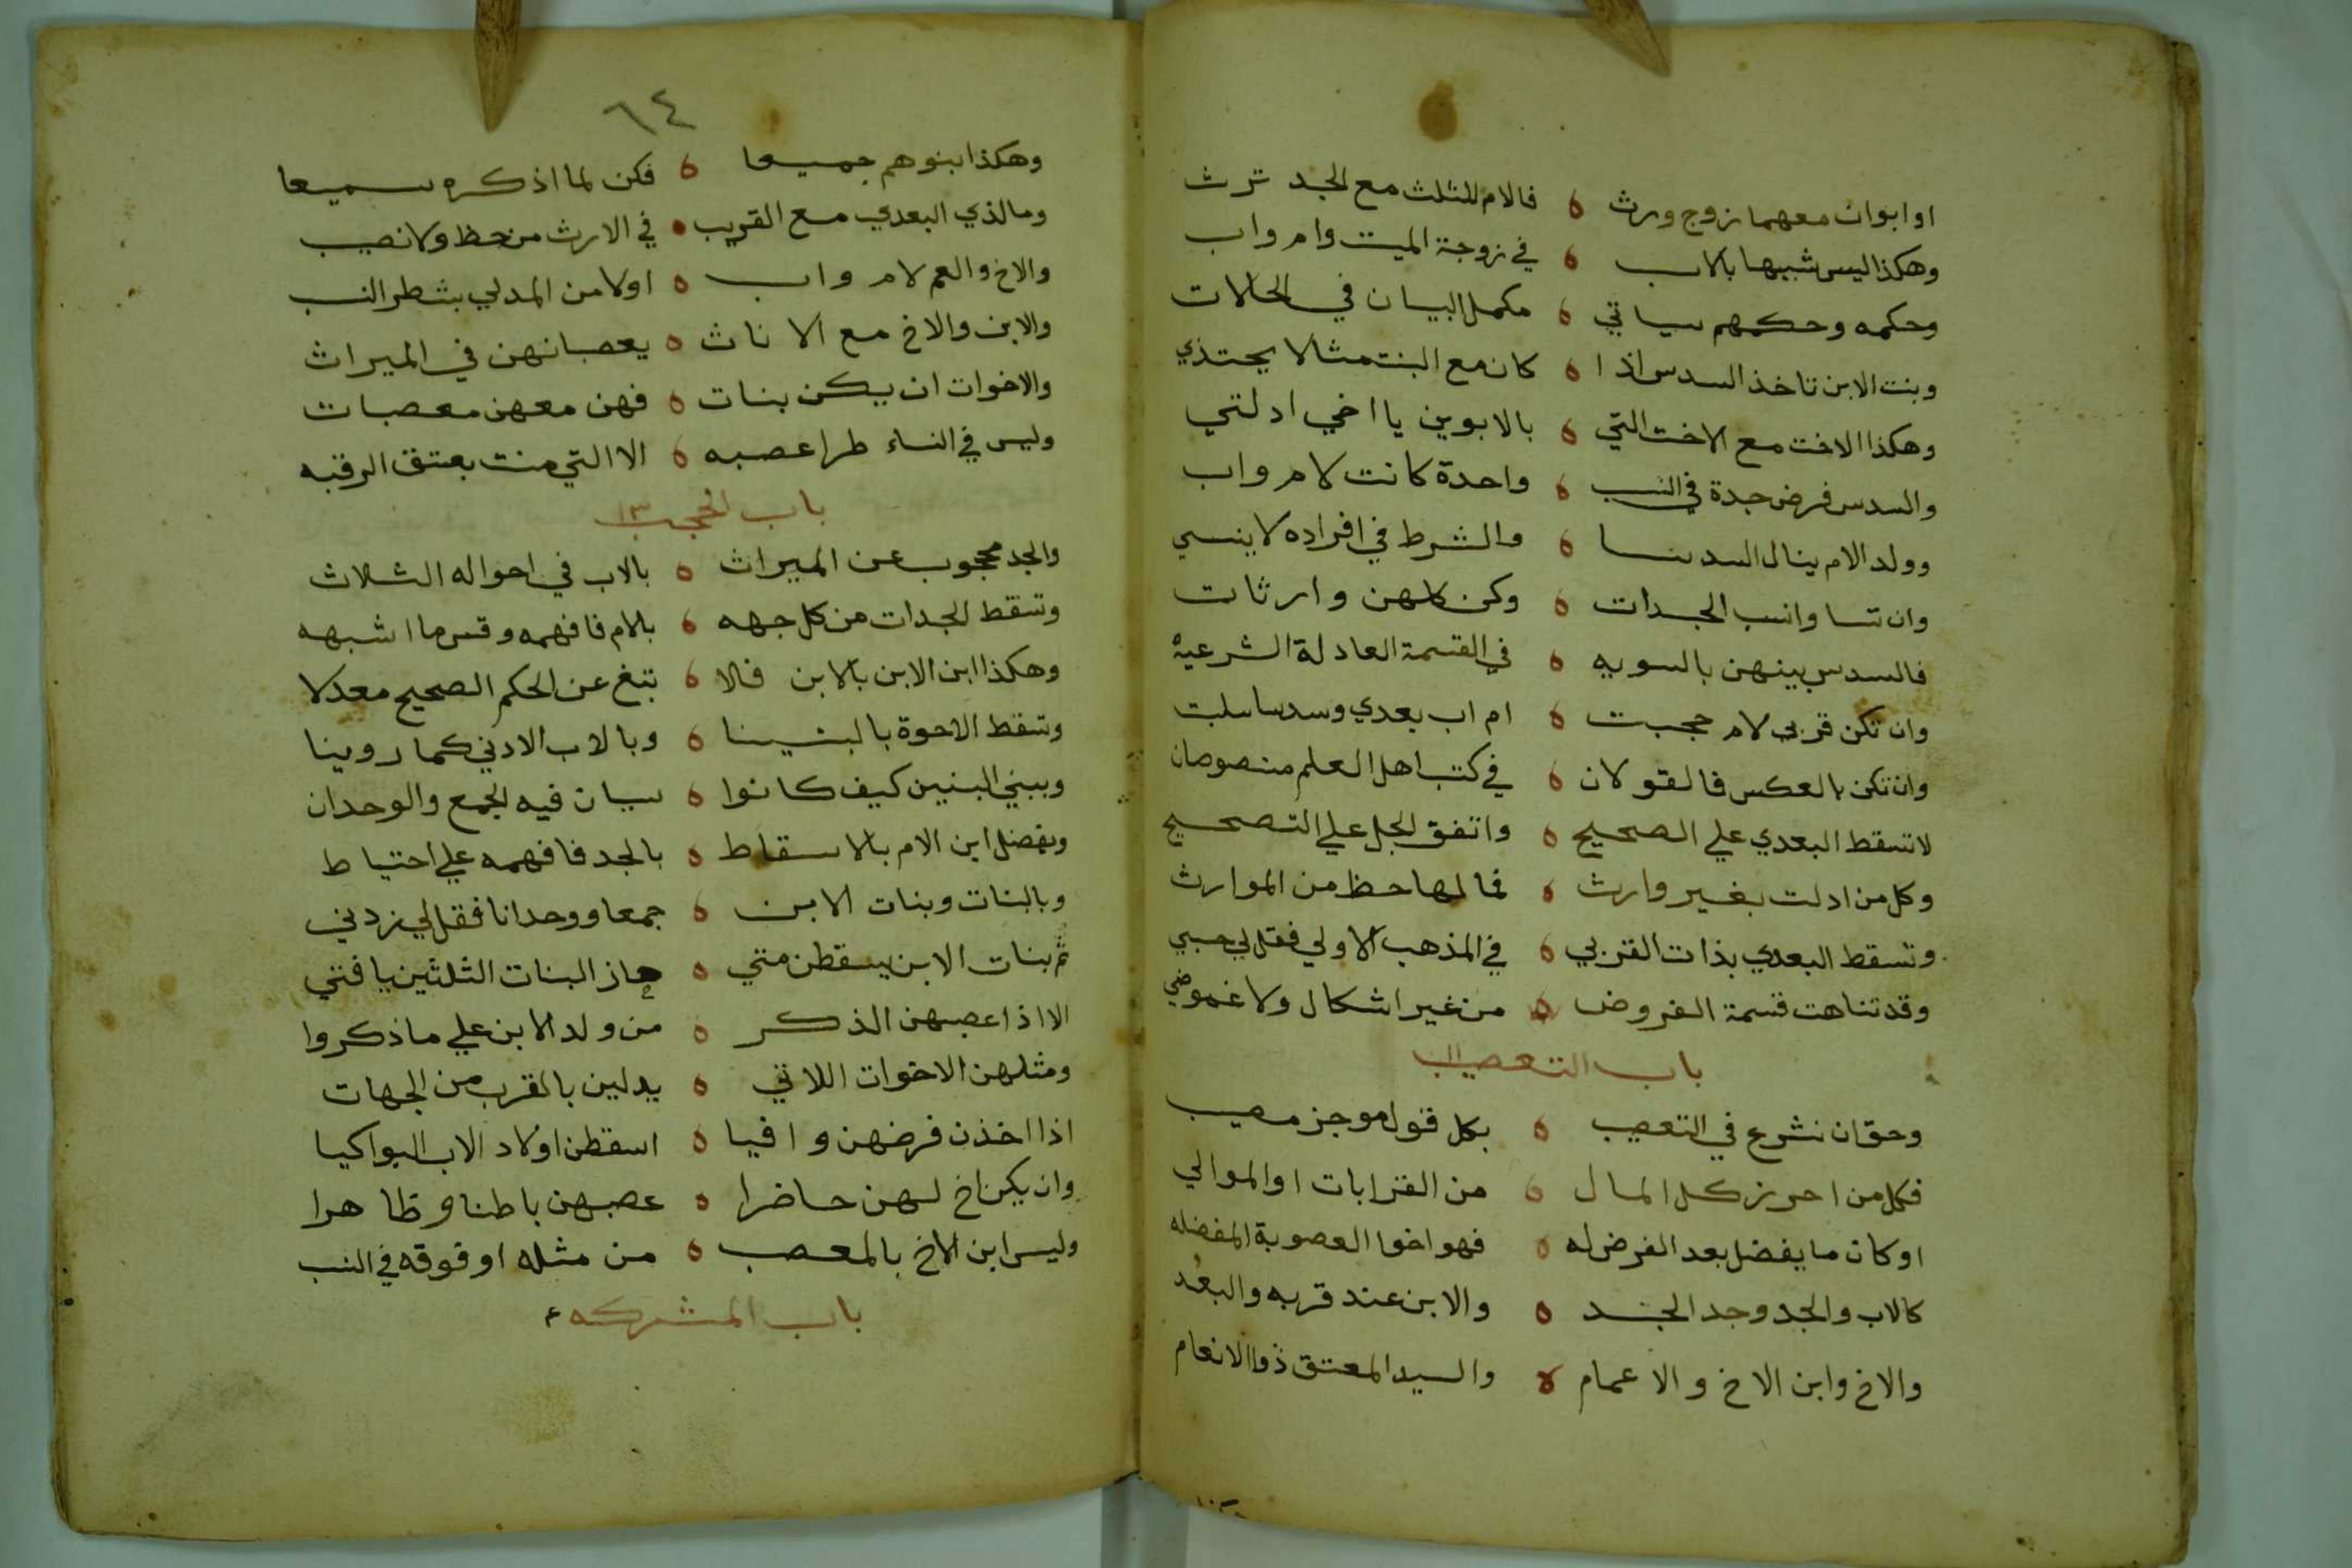 او ابوان معهما زوج ورث ه فالام للثلث مع الجد ترث
وهكذا ليس شبيها بالاب ه في زوجة الميت وام واب
وحكمه وحكمهم سياتي ه مكمل البيان في الحالات
وبنت الابن تاخذ السدس اذا ه كان مع البنت مثالا يحتذي
وهكذا الاخت مع الاخت التي ه بالابوين يا اخي ادلتي
والسدس فرض جدة في النسب ه واحدة كانت لام واب
وولد الام ينال السدسا ه والشرط في افراده لا ينسي
وان تساوا نسب الجدات ه وكن كلهن وارثات
فالسدس بينهن بالسويه ه في القسمة العادلة الشرعيه
وان تكن قربي لام حجبت ه ام اب بعدي وسدسا سلبت
وان تكن بالعكس فالقولان ه في كتب اهل العلم منصوصان
لا تسقط البعدي علي الصحيح ه واتفق الجل علي التصحيح
وكل من ادلت بغير وارث ه فما لها حظ من الموارث
وتسقط البعدي بذات القربي ه في المذهب الاولي فقل لي حسبي
وقد تناهت قسمة الفروض ه من غير اشكال ولا غموض
باب التعصيب
وحق ان نشرع في التعصيب ه بكل قول موجز مصيب
فكل من احرز كل المال ه من القرابات او الموالي
او كان ما يفضل بعد الفرض له ه فهو اخوا العصوبة المفضله
كالاب والجد وجد الجد ه والابن عند قربه والبعد
والاخ وابن الاخ والاعمام ه والسيد المعتق ذوا الانعام
٦٤
وهكذا بنوهم جميعا ه فكن لما اذكره سميعا
وما لذي البعدي مع القريب ه في الارث من حظ ولا نصيب
والاخ والعم لام واب ه اولا من المدلي بشطر النسب
والابن والاخ مع الاناث ه يعصبانهن في الميراث
والاخوات ان يكن بنات ه فهن معهن معصبات
وليس في النساء طرا عصبه ه الا التي منت بعتق الرقبه
باب الحجب
والجد محجوب عن الميراث ه بالاب في احواله الثلاث
وتسقط الجدات من كل جهه ه بالام فافهمه وقس ما اشبهه
وهكذا ابن الابن بالابن فلا ه تبغ عن الحكم الصحيح معدلا
وتسقط الاخوة بالبنينا ه وبالاب الادني كما روينا
وببني البنين كيف كانوا ه سيان فيه الجمع والوحدان
ويفضل ابن الام بالاسقاط ه بالجد فافهمه علي احتياط
وبالبنات وبنات الابن ه جمعا ووحدانا فقل لي زدني
ثم بنات الابن يسقطن متي ه حاز البنات الثلثين يا فتي
الا اذا عصبهن الذكر ه من ولد الابن علي ما ذكروا
ومثلهن الاخوات اللاتي ه يدلين بالقرب من الجهات
اذا اخذن فرضهن وافيا ه اسقطن اولاد الاب البواكيا
وان يكن اخ لهن حاضرا ه عصبهن باطنا وظاهرا
وليس ابن الاخ بالمعصب ه من مثله او فوقه في النسب
باب المشركه